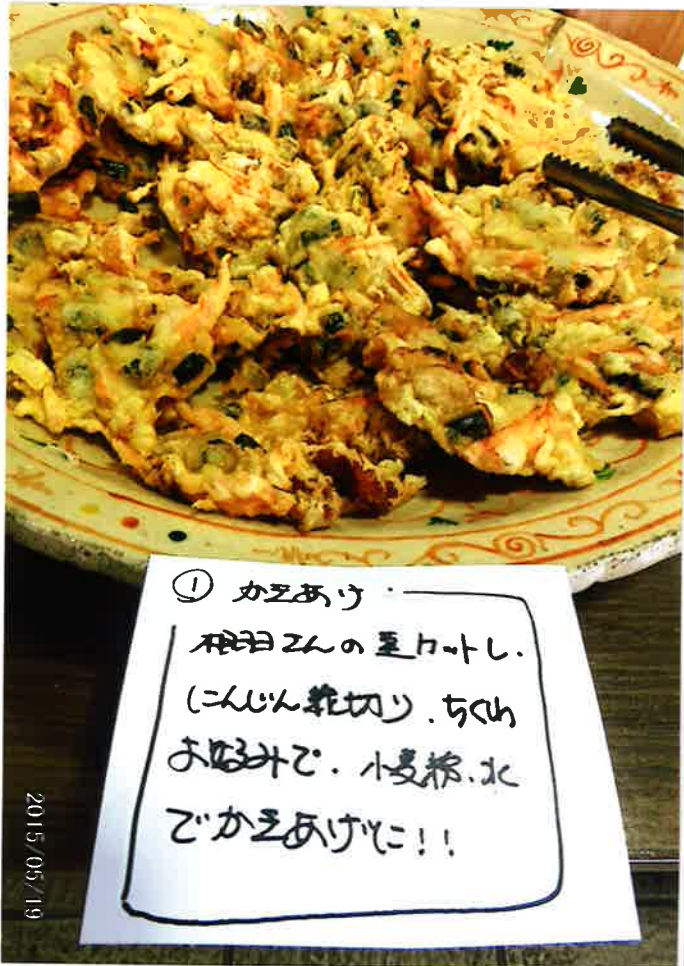 ① かきあげ
相羽さんの豆カットし.
にんじん乾切り.ちくわ
お好みで.小麦粉.水
でかきあげに!!
2015/05/19